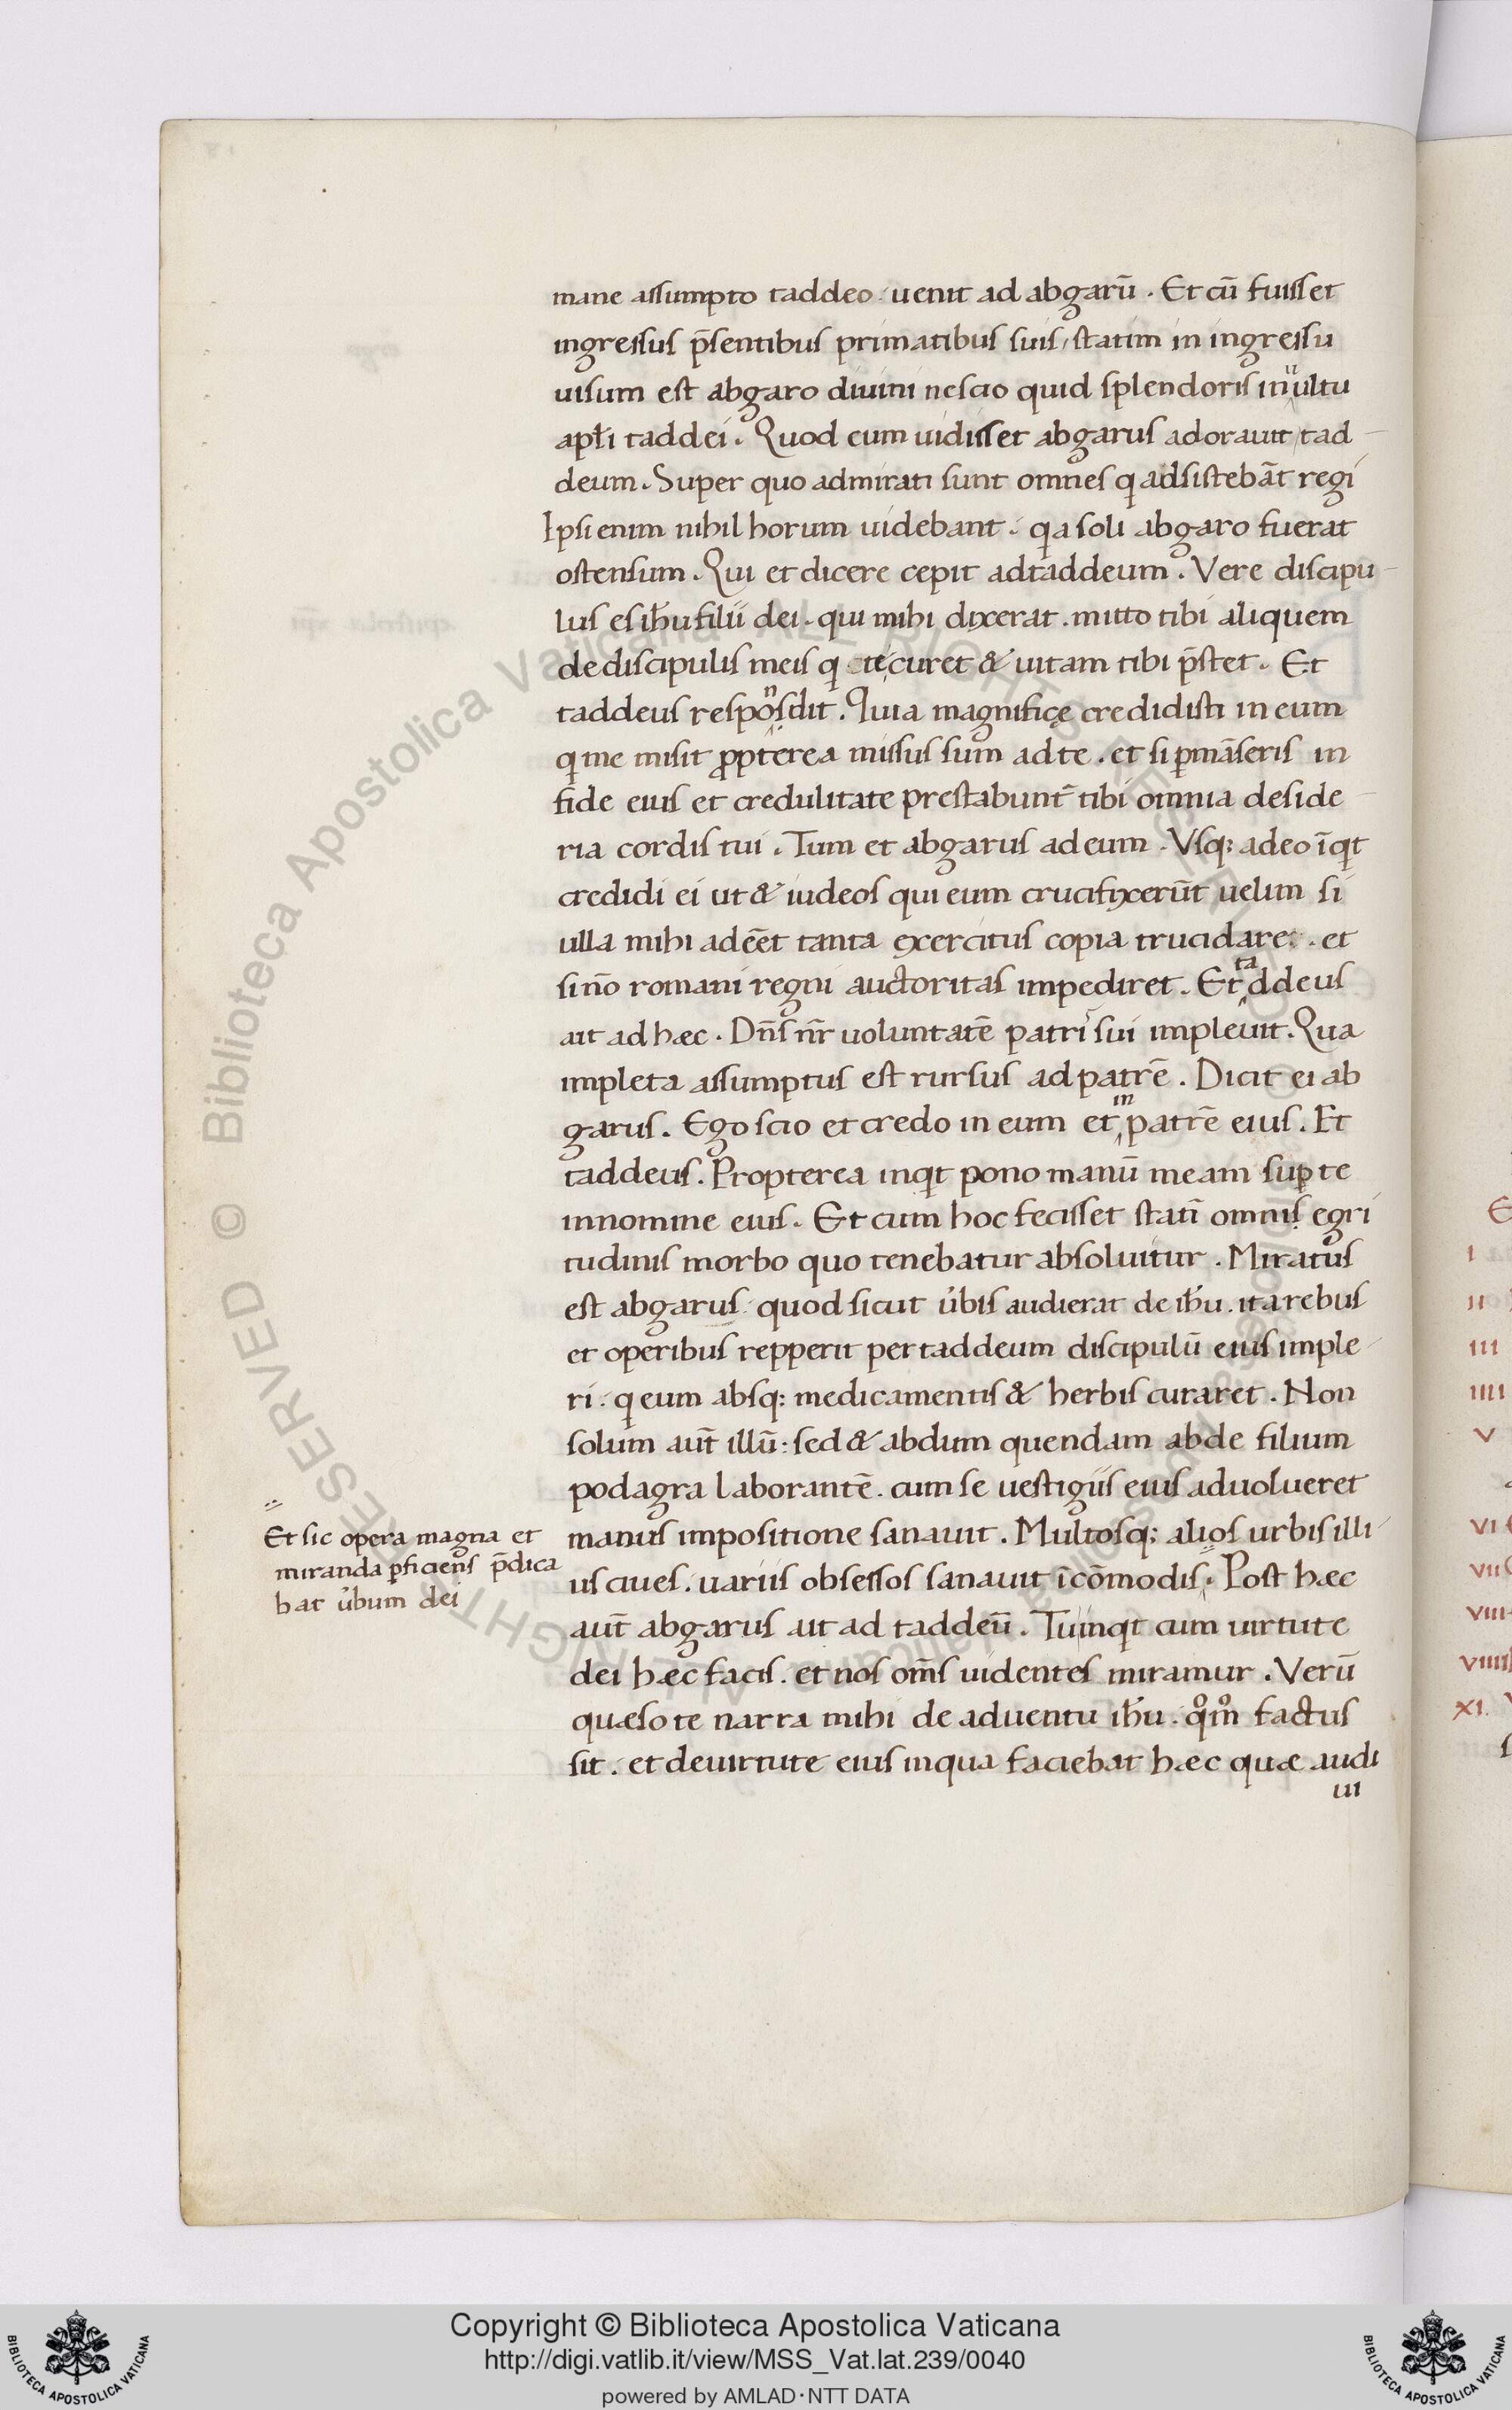 mane assumpto taddeo · uenit ad abgarū . Et cū fuisset
ingressus p̄sentibus primatibus suis, statim in ingressu
uisum est abgaro diuini nescio quid splendoris in uultu
apłi taddei . Quod cum uidisset abgarus adorauit tad-
deum . Super quo admirati sunt omnes q adsistebāt regi
Ipsi enim nihil horum uidebant . qa soli abgaro fuerat
ostensum . Qui et dicere cepit ad taddeum . Vere discipu-
lus es ihu filii dei . qui mihi dixerat . mitto tibi aliquem
de discipulis meis q te curet & uitam tibi p̄stet . Et
taddeus respondit . Quia magnifice credidisti in eum
q me misit ꝓpterea missus sum ad te . et si ꝑmāseris in
fide eius et credulitate prestabunt̄ tibi omnia deside-
ria cordis tui . Tum et abgarus ad eum . Vsq; adeo īqt
credidi ei ut & iudeos qui eum crucifixerūt uelim si
ulla mihi adēēt tanta exercitus copia trucidare . et
si nō romani regni auctoritas impediret . Et taddeus
ait ad hæc . Dn̄s nr̄ uoluntatē patris sui impleuit . Qua
impleta assumptus est rursus ad patrē . Dicit ei ab
garus . Ego scio et credo in eum et in patrē eius . Et
taddeus . Propterea inqt pono manū meam suꝑ te
in nomine eius . Et cum hoc fecisset statī omnis egri
tudinis morbo quo tenebatur absoluitur . Miratus
est abgarus quod sicut u̓bis audierat de ihu . ita rebus
et operibus repperit per taddeum discipulū eius imple-
ri . q eum absq; medicamentis & herbis curaret . Non
solum aut̄ illū : sed & abdum quendam abde filium
podagra laborantē . cum se uestigiis eius aduolueret
manus impositione sanauit . Multosq; alios urbis illi-
us ciues . uariis obsessos sanauit īcōmodis . Post hæc
Et sic opera magna et
miranda ꝑficiens p̄dica
bat u̓bum dei
aut̄ abgarus ait ad taddeū . Tu inqt cum uirtute
dei hæc facis . et nos om̄s uidentes miramur . Verū
quæso te narra mihi de aduentu ihu . qo̊mo̊ factus
sit . et de uirtute eius in qua faciebat hæc quæ audi
ui
E
I
II
III
IIII
V
VI
VII
VIII
VIIII
XI.
Copyright © Biblioteca Apostolica Vaticana
http://digi.vatlib.it/view/MSS_Vat.lat.239/0040
powered by AMLAD·NTT DATA
BIBLIOTECA APOSTOLICA VATICANA
BIBLIOTECA APOSTOLICA VATICANA